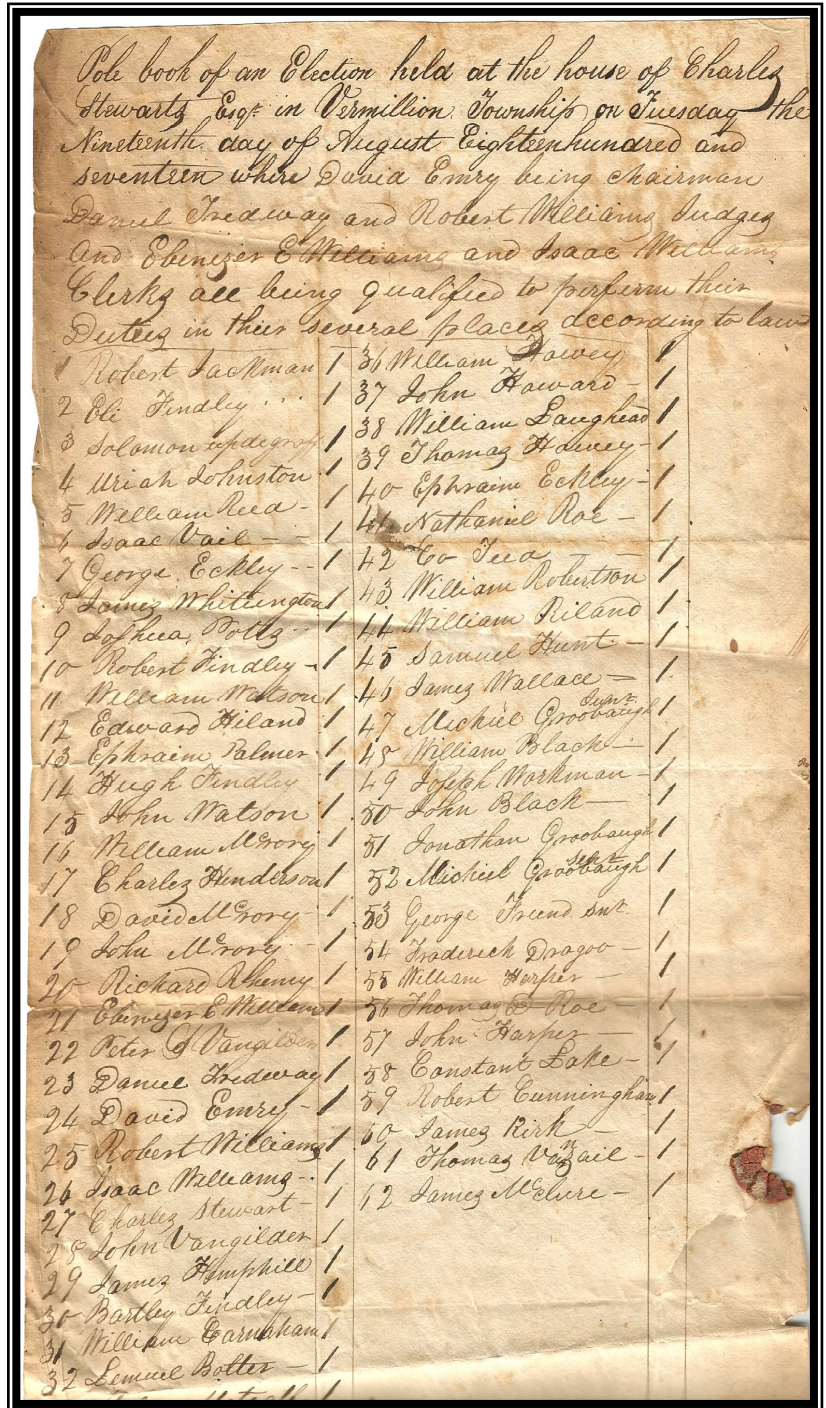 Pole book of an Election held at the house of Charles
Stewarts Esqr. in Vermillion Township on Tuesday the
Nineteenth day of August Eighteenhundred and
seventeen where David Emry being chairman
Daniel Tredway and Robert Williams Judges
And Ebenezer E Williams and Isaac Williams
Clerks all being qualified to perferm their
Duties in thier several places according to law
1 Robert Jackman 1
2 Eli Findley 1
3 Solomon updegraff 1
4 Uriah Johnston 1
5 William Reed - 1
6 Isaac Vail - - 1
7 George Eckley - - 1
8 James Whittington 1
9 Joshua Potts 1
10 Robert Findley - 1
11 William Watson 1
12 Edward Hiland 1
13 Ephraim Palmer 1
14 Hugh Findley 1
15 John Watson 1
16 William Mcrory 1
17 Charles Henderson 1
18 David Mcrory - 1
19 John Mcrory 1
20 Richard Rheny 1
21 Ebenezer E Williams 1
22 Peter Vangilder 1
23 Daniel Tredway 1
24 David Emry - 1
25 Robert Williams 1
26 Isaac Williams - 1
27 Charles Stewart - 1
28 John Vangilder 1
29 James Hemphill 1
30 Bartley Findley - 1
31 William Carnaham 1
32 Lemuel Botter - 1
36 William Hawey 1
37 John Haward - 1
38 William Laughead 1
39 Thomas Harvey - 1
40 Ephraim Eckley - 1
41 Nathaniel Roe - 1
42 Co Tea - - 1
43 William Robertson 1
44 William Riland 1
45 Samuel Hunt - 1
46 James Wallace - 1
47 Michiel Groobaugh Junr 1
48 William Black - 1
49 Joseph Workman - 1
50 John Black - 1
51 Jonathan Groobaugh 1
52 Michiel Groobaugh senr 1
53 George Friend snr. 1
54 Fraderick Dragoo - 1
55 William Harper - 1
56 Thomas D Roe 1
57 John Harper - 1
58 Constant Lake - 1
59 Robert Cunningham 1
60 James Kirk - 1
61 Thomas Vanzail - 1
62 James Mcclure - 1